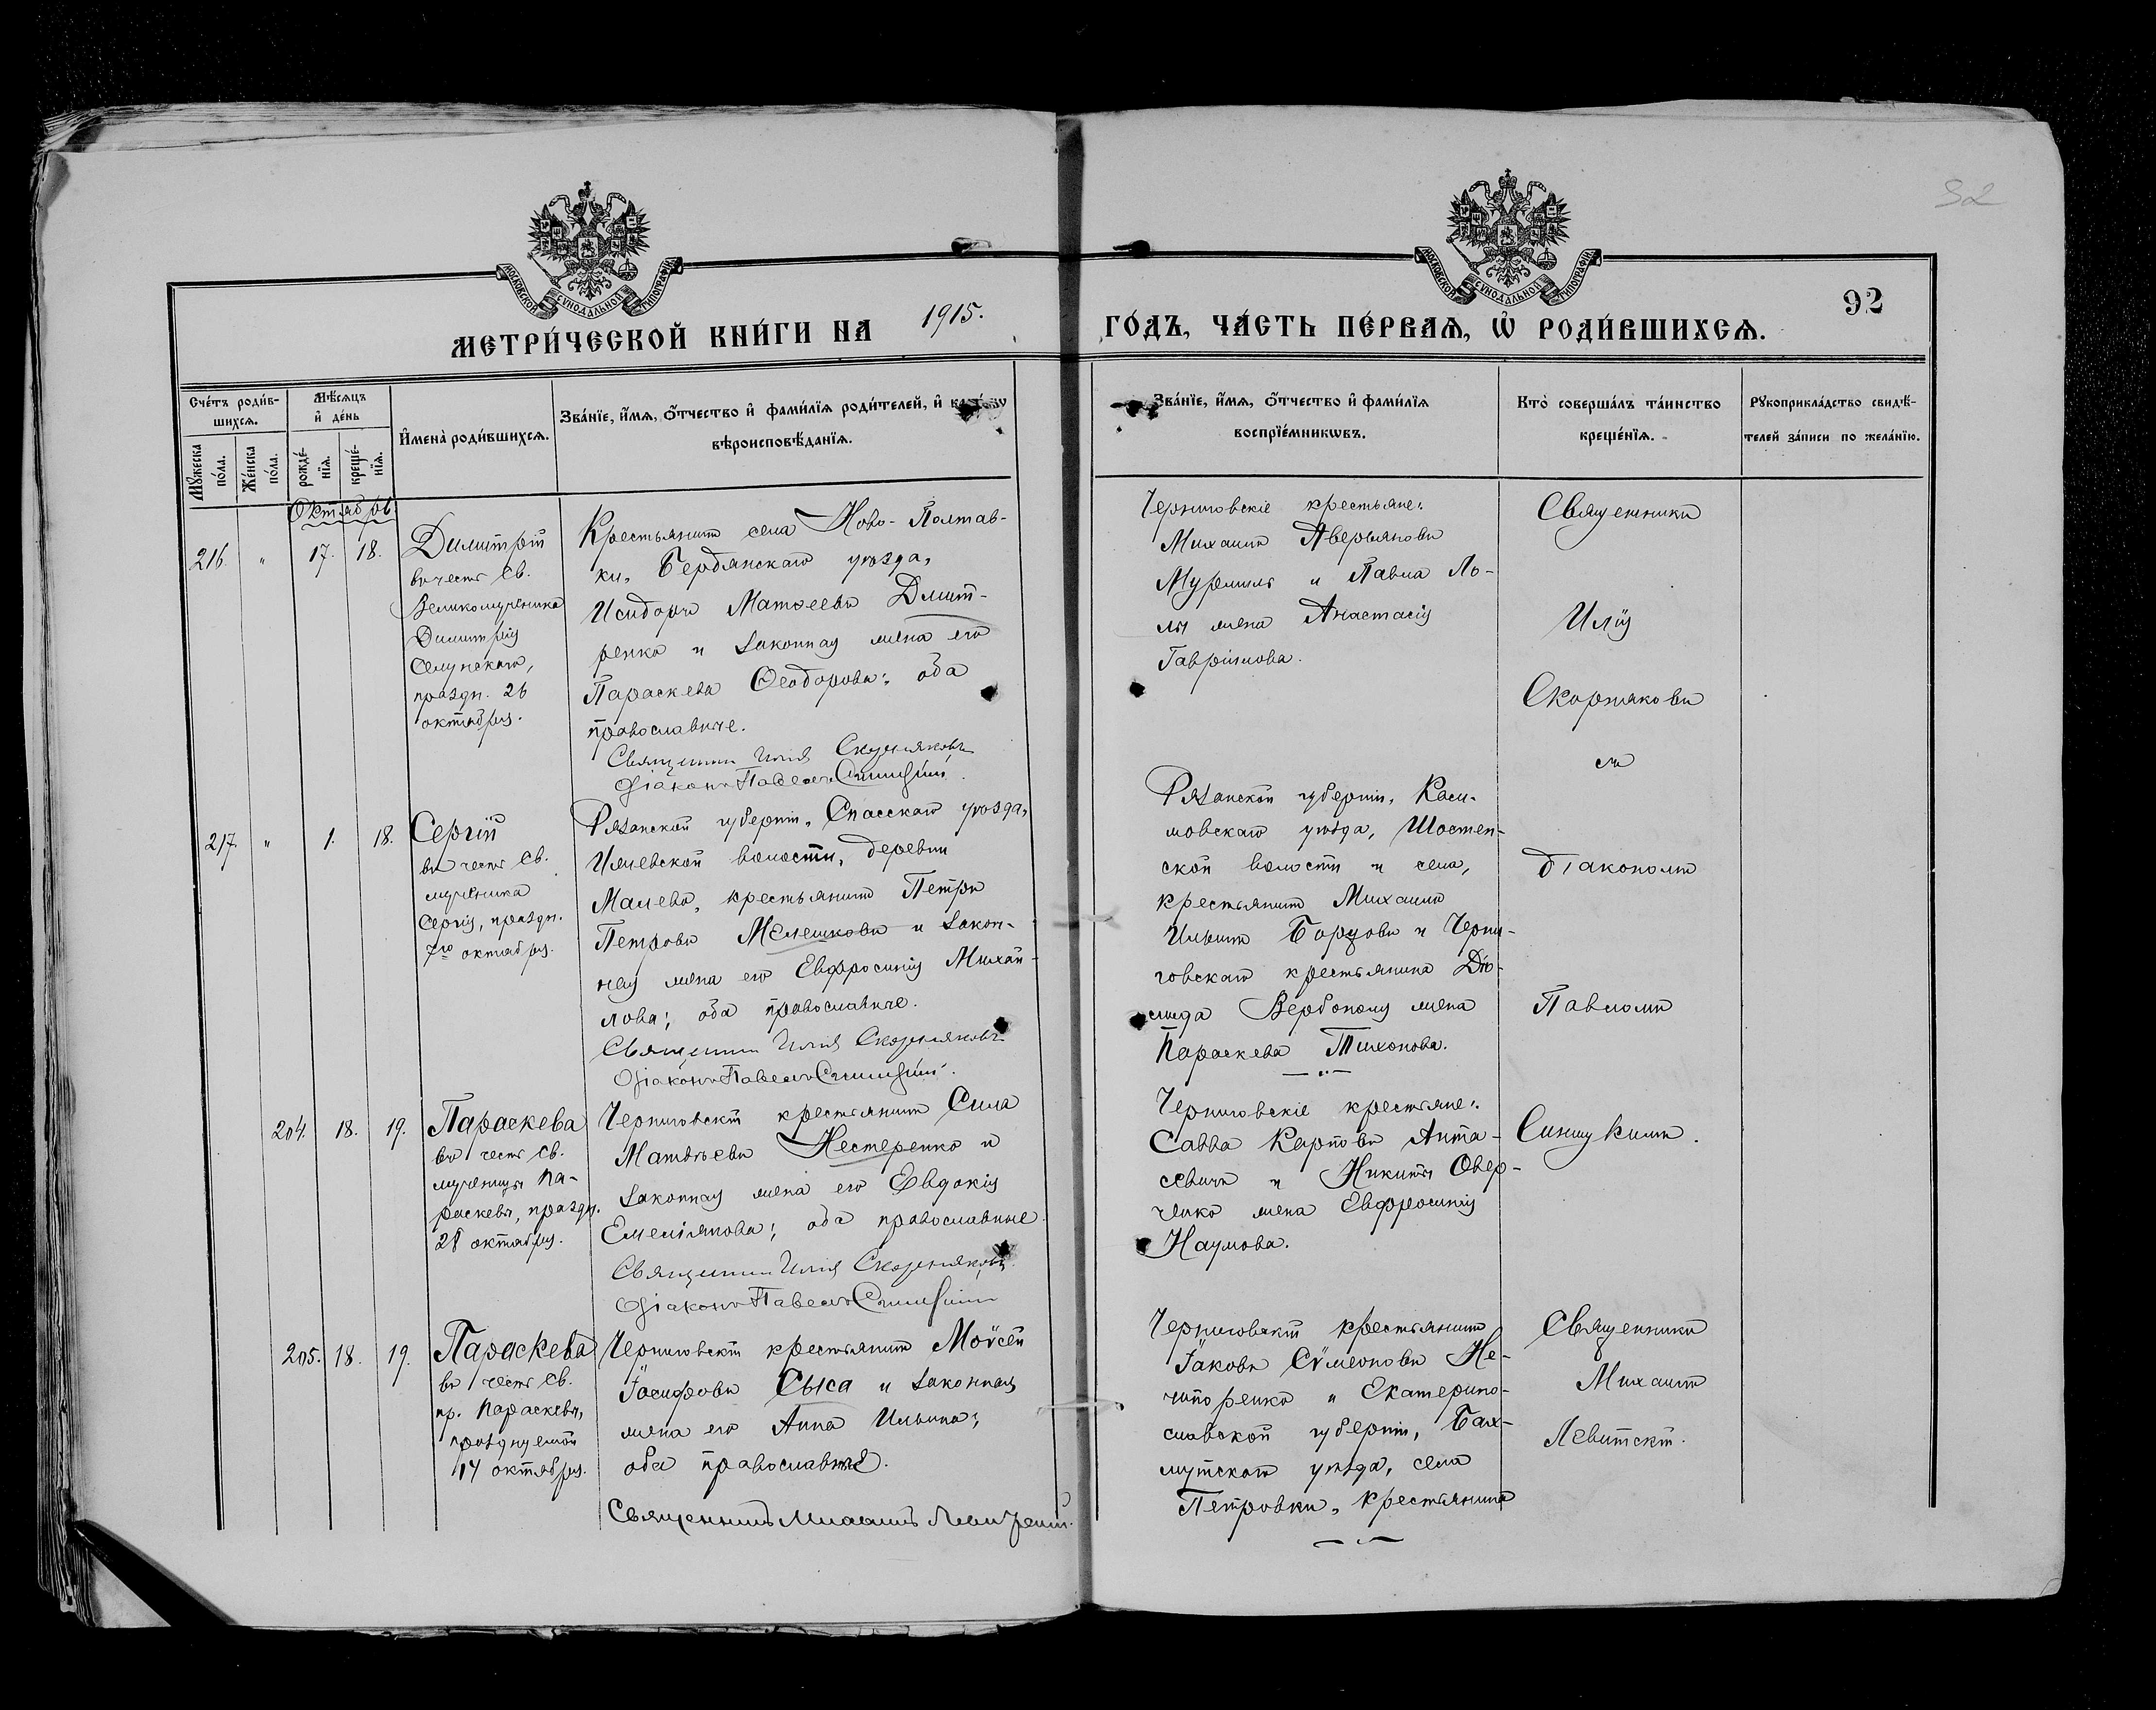 92
МОСКОВСКОЙ СѴНОДАЛЬНОЙ ТИПОГРАФІИ
МОСКОВСКОЙ СѴНОДАЛЬНОЙ ТИПОГРАФІИ
92
МЕТРИ́ЧЕСКОЙ КНИ́ГИ НА 1915. ГО́ДЪ, ЧА́СТЬ ПЕ́РВАѦ, Ѡ҆ РОДИ́ВШИХСѦ.
Сче́тъ роди́в-
шихсѧ.
Мꙋ́жеска по́ла.
Же́нска по́ла.
Мѣ́сѧцъ
и҆ де́нь
рожде́-
нїѧ.
креще́-
нїѧ.
И҆мена̀ роди́вшихсѧ.
Зва́нїе, и҆́мѧ, ѻ҆́тчество и҆ фами́лїѧ роди́телей, и҆
вѣроисповѣ́данїѧ.
Зва́нїе, и҆́мѧ, ѻ҆́тчество и҆ фами́лїѧ
воспрїе́мникѡвъ.
Кто̀ соверша́лъ та́инство
креще́нїѧ.
Рꙋкоприкла́дство свидѣ́-
телей за́писи по жела́нїю.
Октябрь
216. " 17. 18.
Димитрій
въ честь Св.
Великомученика
Димитрія
Селунскаго,
праздн. 26
октября.
Крестьянинъ села Ново-Полтав-
ки, Бердянскаго уѣзда,
Исидоръ Матѳеевъ Дмит-
ренко и законная жена его
Параскева Ѳеодорова; оба
православные.
Священникъ Илія Скорняковъ
Діаконъ Павелъ
Черниговскіе крестьяне:
Михаилъ Аверьяновъ
и Павла
жена Анастасія
Гавріилова.
Священникъ
Илія
Скорняковъ
съ
діакономъ
Павломъ
217. " 1. 18.
Сергій
въ честь Св.
мученика
Сергія, праздн.
7го октября.
Рязанской губерніи, Спасскаго уѣзда,
волости, деревни
крестьянинъ Петръ
Петровъ Мелешковъ и закон-
ная жена его Евфросинія Михаи-
лова; оба православные.
Священникъ Илія Скорняковъ
Діаконъ Павелъ
Рязанской губерніи, Каси-
мовскаго уѣзда, Шостен-
ской волости и села,
крестьянинъ Михаилъ
Ильинъ Борзовъ и Черни-
говскаго крестьянина
жена
Параскева Тихонова.
204. 18. 19.
Параскева
въ честь Св.
мученицы Па-
раскевы, праздн.
28 октября.
Черниговскій крестьянинъ Сила
Матвѣевъ Нестеренко и
законная жена его Евдокія
Емеліянова; оба православные.
Священникъ Илія Скорняковъ
Діаконъ Павелъ
Черниговскіе крестьяне:
Савва Карповъ Анта-
севичъ и Никиты Овер-
ченко жена Евфросинія
Наумова.
205. 18. 19.
Параскева
въ честь Св.
пр. Параскевы,
празднуемой
14 октября.
Черниговскій крестьянинъ Моѵсей
Іосифовъ Сыса и законная
жена его Анна Ильина;
оба православные.
Священникъ Михаилъ Левитскій.
Черниговскій крестьянинъ
Іаковъ Сѵмеоновъ Не-
чипоренко и Екатерино-
славской губерніи, Бах-
мутскаго уѣзда, села
Петровки, крестьянина
Священникъ
Михаилъ
Левитскій.